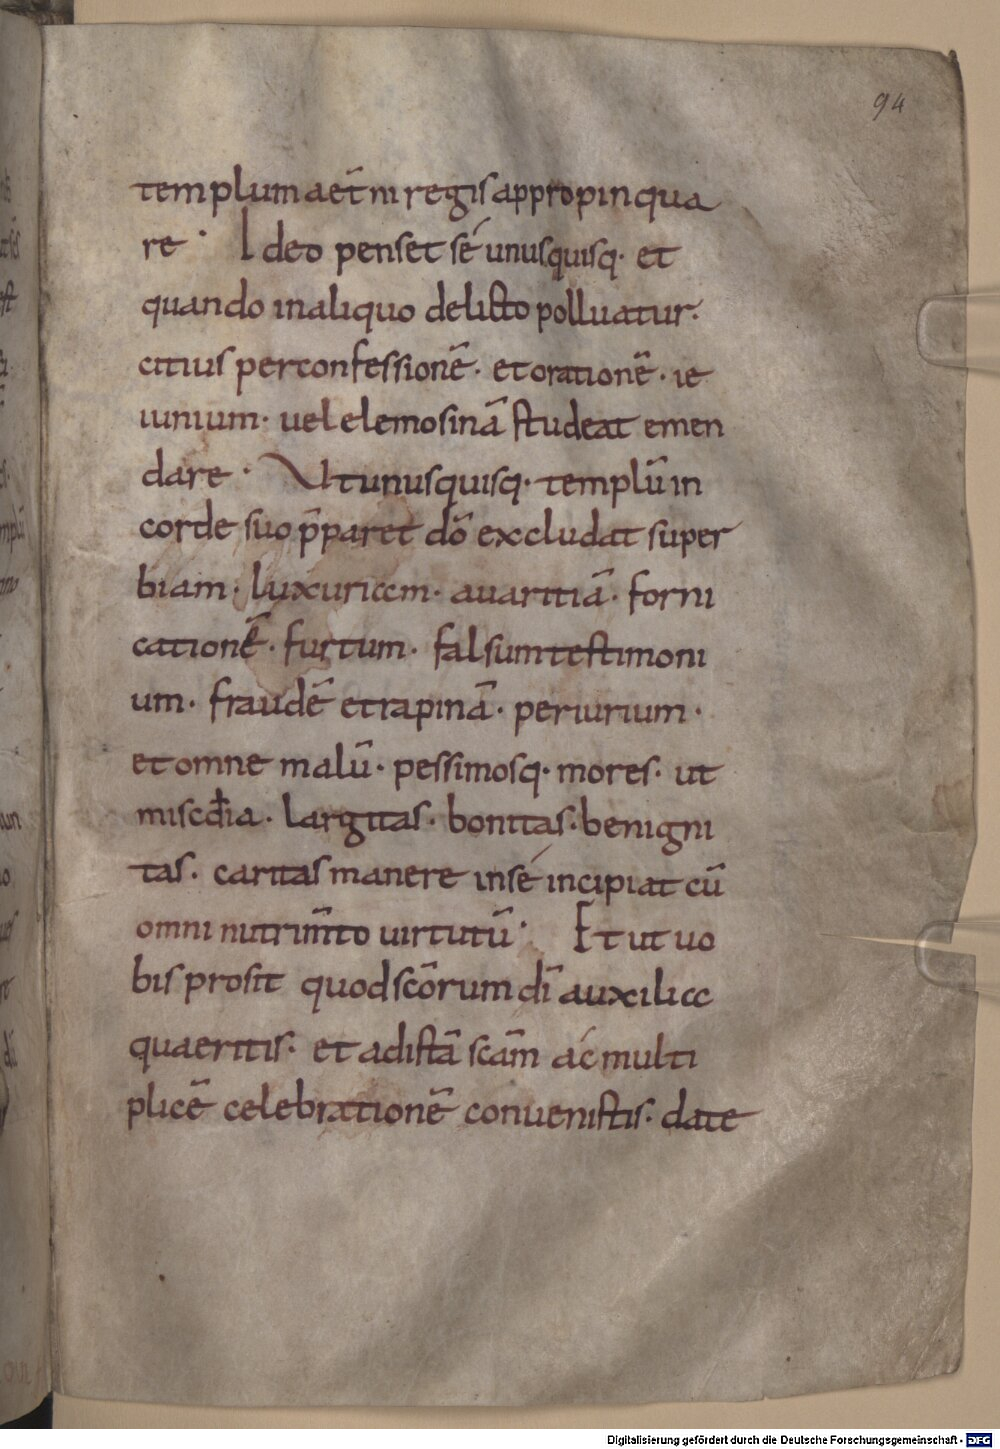 94
templum aet̄ni regis appropinqua
re · Ideo penset sé unusquisq· et
quando inaliquo delicto polluatur·
citius perconfessionē· et orationē· ie
iunium· uel elemosinā studeat emen
dare · Ut unusquisq· templū in
corde suo p̄paret dō excludat super
biam· luxuriam· auaritiā· forni
cationē· furtum· falsum testimoni
um· fraudē et rapinā· periurium·
et omne malū· pessimosq· mores· ut
miscđia· largitas· bonitas· benigni
tas· caritas manere insé incipiat cū
omni nutrim̄to uirtutū· Et ut uo
bis prosit quod scōrum dī auxilia
quaeritis· et adistā scām ác multi
plicē celebrationē conuenistis· date
Digitalisierung gefördert durch die Deutsche Forschungsgemeinschaft - DFG